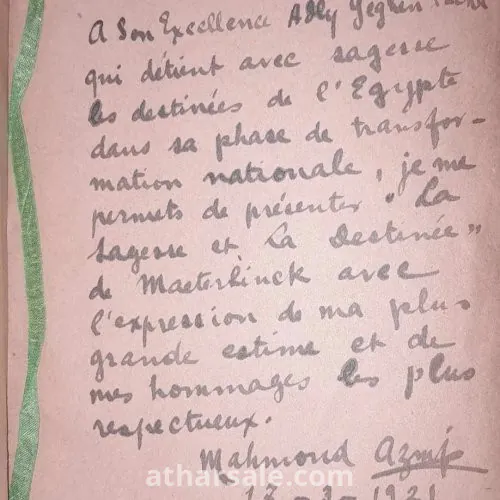 A Son Excellence Adly Yeghen Pacha
qui détient avec sagesse
les destinées de l'Egypte
dans sa phase de transfor-
mation nationale, je me
permets de présenter "La
Sagesse et La Destinée"
de Maeterlinck avec
l'expression de ma plus
grande estime et de
mes hommages les plus
respectueux.
Mahmoud Azmi
atharsale.com
17 - 3 - 1921